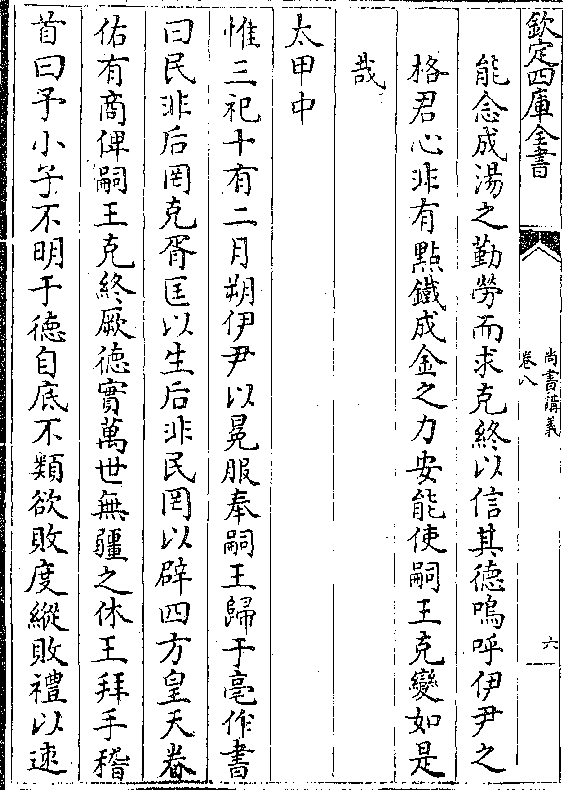 欽定四庫全書
尚書講義
卷八
六
能念成湯之勤勞而求克終以信其德嗚呼伊尹之
格君心非有點鐵成金之力安能使嗣王克變如是
哉
太甲中
惟三祀十有二月朔伊尹以冕服奉嗣王歸于亳作書
曰民非后罔克胥匡以生后非民罔以辟四方皇天眷
佑有商俾嗣王克終厥德實萬世無疆之休王拜手稽
首曰予小子不明于德自底不類欲敗度縱敗禮以速